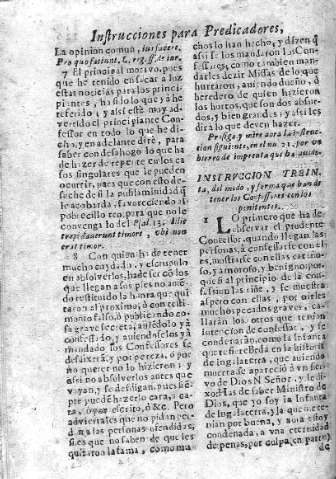 Instrucciones para Predicadores,
La opinion comun, iurs
Pro quo faciunt, L.
7 El principal motivo, pues
que he tenido en sacar a luz
estas noticias para los princi-
piantes, ha sido lo que yà he
referido, y assi està muy ad-
vertido el principiante Con-
fessor en todo lo que he di-
cho, y en adelante dirè, para
saber con desahogo lo que ha
de hazer de repente en los ca-
sos singulares que le pueden
ocurrir, para que con esto de-
seche de si la pusilanimidad q
le acobarda, favoreciendo al
pobrecillo reo, para que no le
convenga lo del Psal. 13. Illic
trepidaverunt timore, ubi non
erat timor.
8 Con quien ha de tener
mucho cuydado, y escrupulo
en absolverlos, ha de ser có los
que llegan a sus pies no avié-
do restituido la honra que qui
taron al proximo, ò con testi-
monio falso, ò publicando co-
sa grave secreta, aviédolo yà
confessado, y aviendoselos yà
mandado sus Confessores se
desdixera, y por pereza, ò por
no querer no lo hizieron; y
assi no absolverlos antes que
vayan, y se desdigan, pues siem-
pre puedé hizerlo cara, à ca-
ra, ò por escrito, ò &c. Pero
adviertales que no pidan per-
don à las personas ofendidas,
si es que no saben de que les
quitaron la fama, como ma
chos lo han hecho, y dizen q
assi se los mandaron sus Có-
fessores, como tambien man-
darles dezir Missas de lo que
hurtaron, aviendo dueño, ò
heredero de quien hizieron
los hurtos, que son dos absur-
dos, y bien grandes, y assi les
dirà lo que deven hazer.
Prosiga y mire aora la instruc-
cion siguiente, en el nu. 21. por un
hierro de imprenta que ha avido.
INSTRUCCION TREIN-
ta, del modo, y forma que han de
tener los Confessores con los
penitentes.
1 LO primero que ha de
observar el prudente
Confessor, quando llegan las
personas, à confessarse con el,
es, mostrarse con ellas cari-
ñoso, y amoroso, y benigno, por
que si al principio de la con-
fession las riñe, y se muestra
aspero con ellas, por oirlas
muchos pecados graves, ca-
llaràn los otros que tenian
intencion de confessar, y se
condenaràn, como la Infanta
que se refiere en la historia
de Inglaterra, que aviendo
muerto se apareciò à un sier-
vo de Dios N Señor, y le di-
xo: Has de saber Ministro de
Dios, que yo soy la Infanta
de Inglaterra, y la que te-
nian por buena, y aora estoy
condenada a una eternidad
de penas, por culpa, en parte,
de